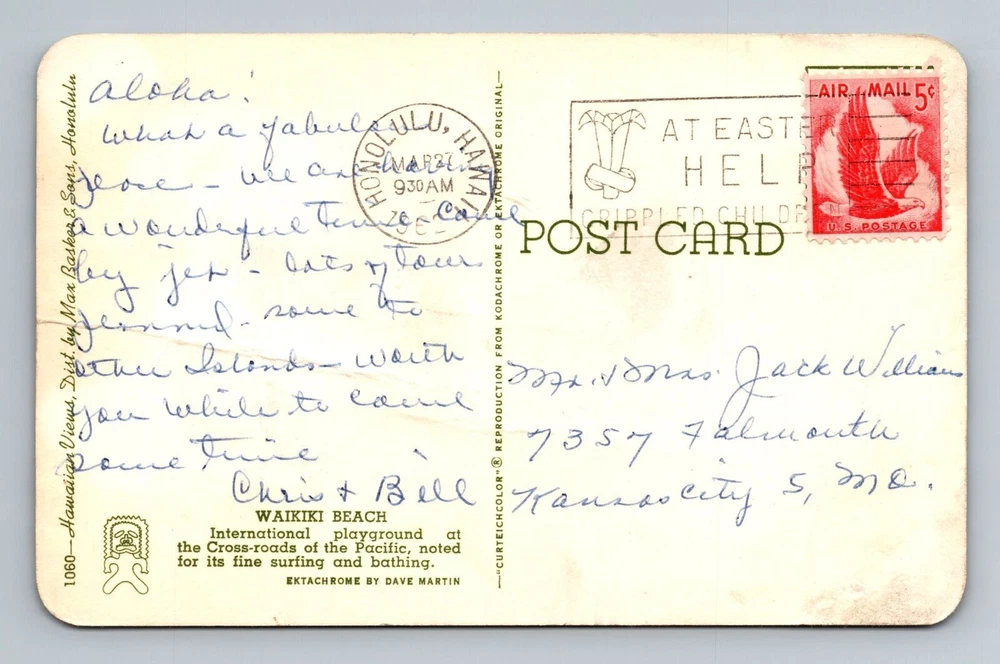 Aloha!
What a fabulous
place - we are having
a wonderful time. Came
by jet - lots of tours
planned - some to
other Islands - worth
you while to come
some time
Chris + Bill
WAIKIKI BEACH
International playground at
the Cross-roads of the Pacific, noted
for its fine surfing and bathing.
EKTACHROME BY DAVE MARTIN
1060—Hawaiian Views, Dist. by Max Basker & Sons, Honolulu
—"CURTEICHCOLOR"® REPRODUCTION FROM KODACHROME OR EKTACHROME ORIGINAL—
HONOLULU, HAWAII
MAR 27
930 AM
AT EASTER
HELP
CRIPPLED CHILDREN
AIR MAIL 5¢
U.S. POSTAGE
POST CARD
Mr. & Mrs. Jack Williams
7357 Falmouth
Kansas City 5, Mo.